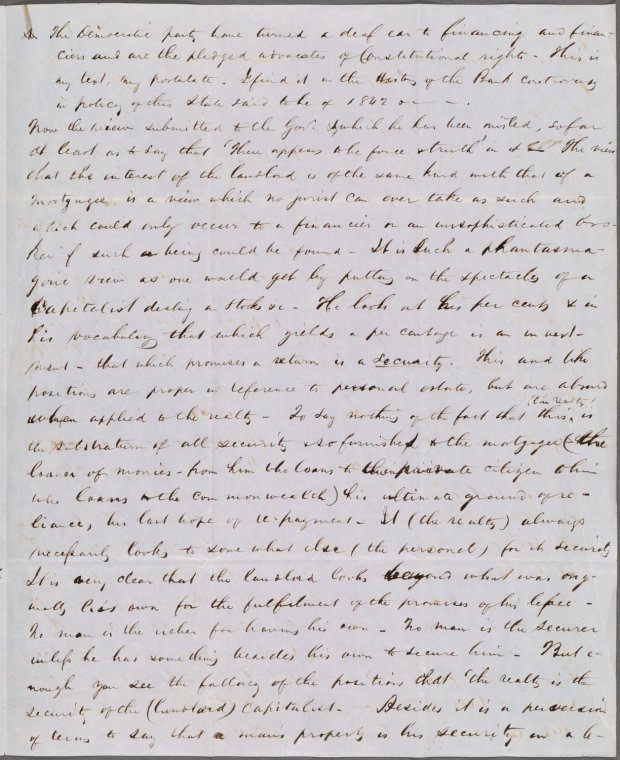 The Democratic party have turned a deaf ear to financing and finan-
ciers and are the pledged advocates of Constitutional rights - This is
my text, my postulate - I find it in the History of the Bank controversy
in policy of this State said to be of 1842 or - - .
Now the view submitted to the Gov. & which he has been misled, so far
at least as to say that 'There appears to be force & truth' in it The view
that the interest of the landlord is of the same kind with that of a
mortgagee is a view which no jurist can ever take as such and
which could only occur to a financier or an unsophisticated bro-
ker if such a being could be found - It is such a phantasma-
goric view as one would get by putting on the spectacles of a
Capitalist dealing in Stocks &c - He looks at his per cents & in
his vocabulary that which yields a per centage is an invest-
ment - that which promises a return is a security. This and like
positions are proper in reference to personal estate, but are absurd
when applied to the realty - To say nothing of the fact that this (the realty) is
the substratum of all security so furnished to the mortgagee (the
loaner of monies - from him who loans to the private citizen to him
who loans to the commonwealth) his ultimate ground of re-
liance, his last hope of re-payment - It (the realty) always
necessarily looks to some what else (the personal) for its security
It is very clear that the landlord looks beyond what was orig-
inally his own for the fulfilment of the promises of his lessee -
No man is the richer for having his own - No man is the securer
unless he has something besides his own to secure him - But e-
nough you see the fallacy of the position that 'the realty is the
security of the (landlord) capitalist - Besides it is a perversion
of terms to say that a man's property is his security in a le-